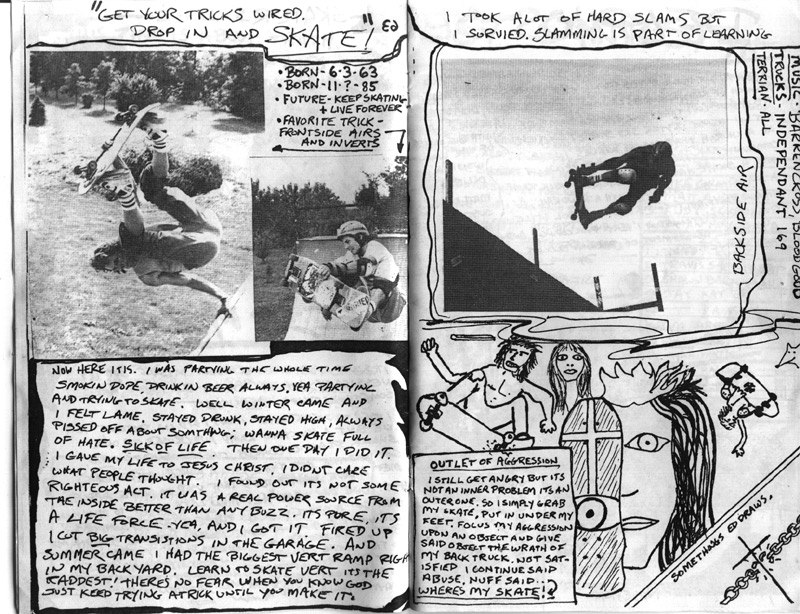 "GET YOUR TRICKS WIRED.
DROP IN AND SKATE!" Ed
• BORN - 6-3-63
• BORN - 11-?-85
• FUTURE - KEEP SKATING
+ LIVE FOREVER
• FAVORITE TRICK -
FRONTSIDE AIRS
AND INVERTS
NOW HERE IT IS. I WAS PARTYING THE WHOLE TIME
SMOKIN DOPE, DRINKIN BEER ALWAYS, YEA PARTYING
AND TRYING TO SKATE. WELL WINTER CAME AND
I FELT LAME, STAYED DRUNK, STAYED HIGH, ALWAYS
PISSED OFF ABOUT SOMTHING; WANNA SKATE FULL
OF HATE. SICK OF LIFE. THEN ONE DAY I DID IT.
I GAVE MY LIFE TO JESUS CHRIST, I DIDNT CARE
WHAT PEOPLE THOUGHT. I FOUND OUT IT'S NOT SOME
RIGHTEOUS ACT, IT WAS A REAL POWER SOURCE FROM
THE INSIDE BETTER THAN ANY BUZZ. ITS PURE, IT'S
A LIFE FORCE - YEA, AND I GOT IT. FIRED UP
I CUT BIG TRANSISTIONS IN THE GARAGE. AND
SUMMER CAME I HAD THE BIGGEST VERT RAMP RIGH
IN MY BACKYARD. LEARN TO SKATE VERT ITS THE
RADDEST! THERES NO FEAR WHEN YOU KNOW GOD
JUST KEEP TRYING A TRICK UNTIL YOU MAKE IT.
I TOOK A LOT OF HARD SLAMS BUT
I SURVIED. SLAMMING IS PART OF LEARNING
MUSIC - BARREN CROSS, BLOOD GOOD
TRUCKS - INDEPENDANT 169
TERRIAN - ALL
BACKSIDE AIR
OUTLET OF AGGRESSION
I STILL GET ANGRY BUT ITS
NOT AN INNER PROBLEM ITS AN
OUTER ONE. SO I SIMPLY GRAB
MY SKATE, PUT IN UNDER MY
FEET. FOCUS MY AGGRESSION
UPON AN OBJECT AND GIVE
SAID OBJECT THE WRATH OF
MY BACK TRUCK. NOT SAT-
ISFIED I CONTINUE SAID
ABUSE, NUFF SAID...
WHERES MY SKATE!?
SOMETHANGS ED DRAWS.